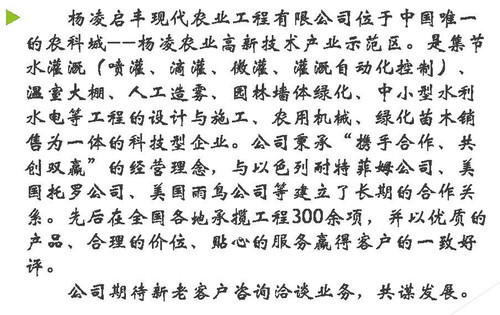 杨凌启丰现代农业工程有限公司位于中国唯一
的农科城——杨凌农业高新技术产业示范区。是集节
水灌溉（喷灌、滴灌、微灌、灌溉自动化控制）、
温室大棚、人工造雾、园林墙体绿化、中小型水利
水电等工程的设计与施工、农用机械、绿化苗木销
售为一体的科技型企业。公司秉承“携手合作、共
创双赢”的经营理念，与以色列耐特菲姆公司、美
国托罗公司、美国雨鸟公司等建立了长期的合作关
系。先后在全国各地承揽工程300余项，并以优质的
产品、合理的价位、贴心的服务赢得客户的一致好
评。
公司期待新老客户咨询洽谈业务，共谋发展。